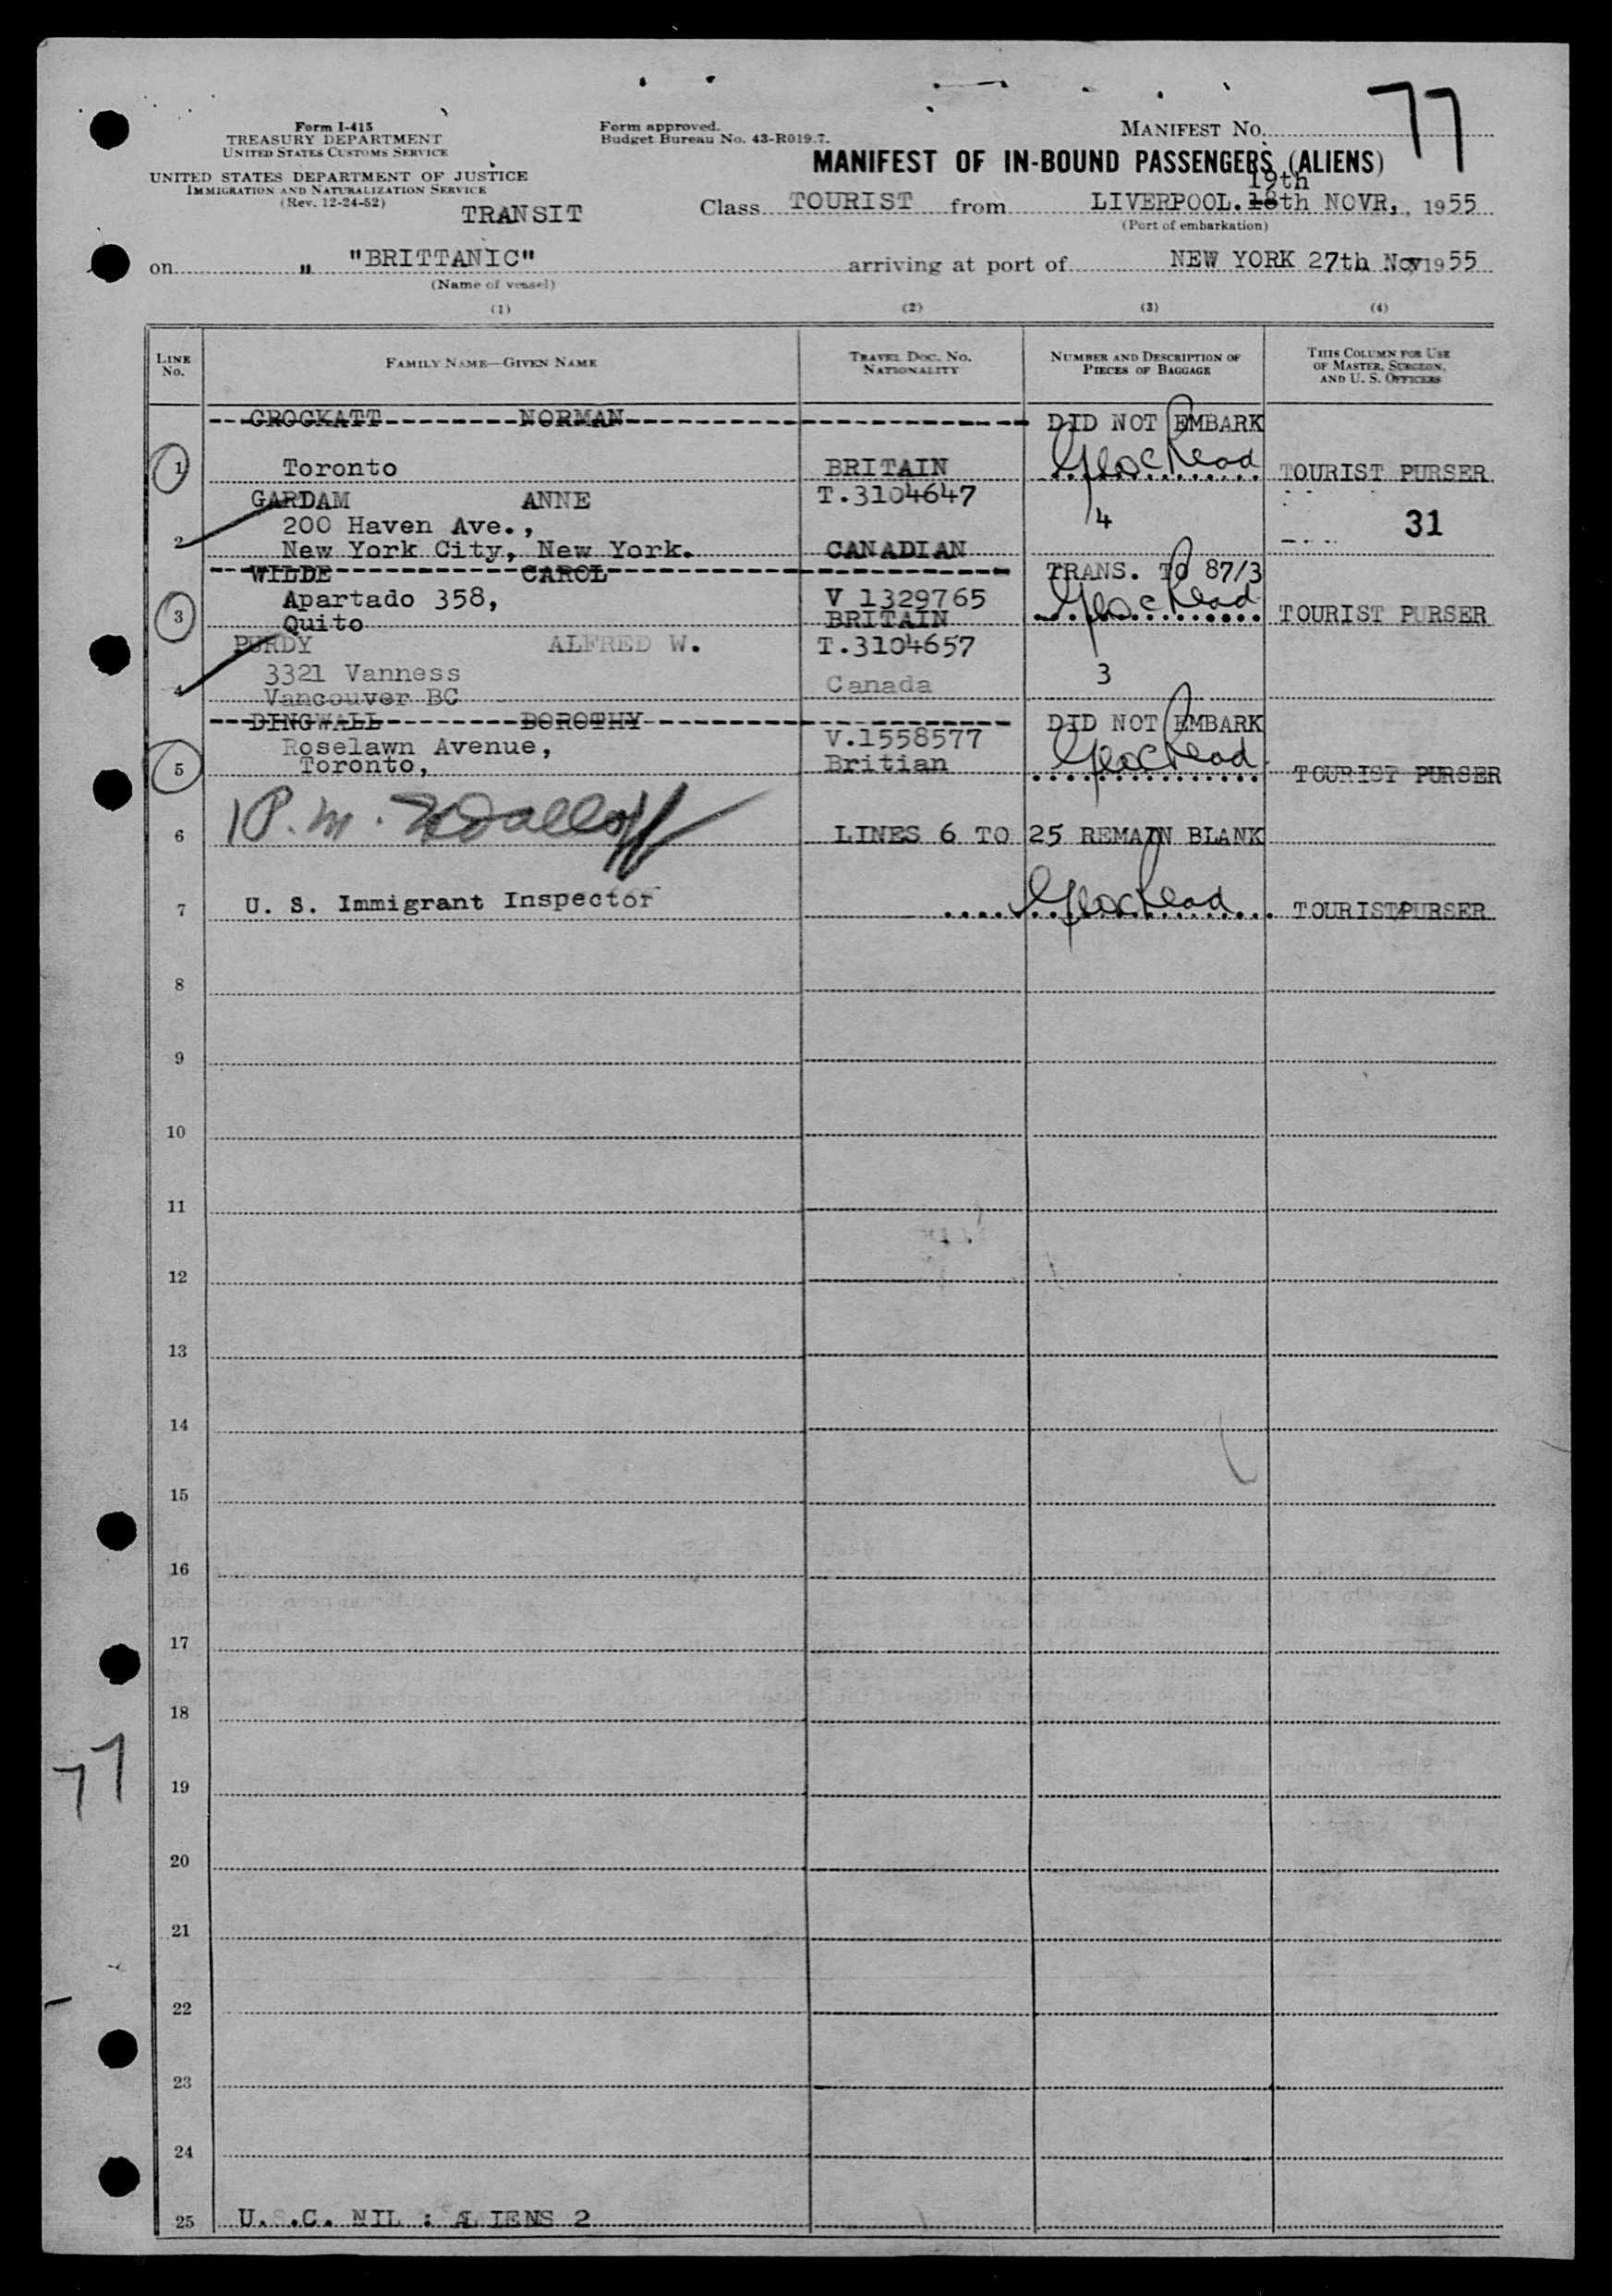 77
Form I-415
TREASURY DEPARTMENT
UNITED STATES CUSTOMS SERVICE
UNITED STATES DEPARTMENT OF JUSTICE
IMMIGRATION AND NATURALIZATION SERVICE
(Rev. 12-24-52)
TRANSIT
Form approved.
Budget Bureau No. 43-R019.7.
MANIFEST NO.
MANIFEST OF IN-BOUND PASSENGERS (ALIENS)
19th
Class TOURIST from LIVERPOOL. 18th NOVR, , 1955
(Port of embarkation)
on " "BRITTANIC" arriving at port of NEW YORK 27th Nov 1955
(Name of vessel)
(1) (2) (3) (4)
LINE No. FAMILY NAME—GIVEN NAME TRAVEL DOC. NO. NATIONALITY NUMBER AND DESCRIPTION OF PIECES OF BAGGAGE THIS COLUMN FOR USE OF MASTER, SURGEON, AND U. S. OFFICERS
GROGKATT NORMAN DID NOT EMBARK
1 Toronto BRITAIN TOURIST PURSER
GARDAM ANNE T.3104647
200 Haven Ave., 4 31
2 New York City, New York. CANADIAN
WILDE CAROL TRANS. TO 87/3
Apartado 358, V 1329765
3 Quito BRITAIN TOURIST PURSER
PURDY ALFRED W. T.3104657
3321 Vanness 3
4 Vancouver BC Canada
DINGWALL DOROTHY DID NOT EMBARK
Roselawn Avenue, V.1558577
5 Toronto, Britian TOURIST PURSER
6 P. M. LINES 6 TO 25 REMAIN BLANK
7 U. S. Immigrant Inspector TOURIST PURSER
8
9
10
11
12
13
14
15
16
17
18
77
19
20
21
22
23
24
25 U.S.C. NIL : ALIENS 2